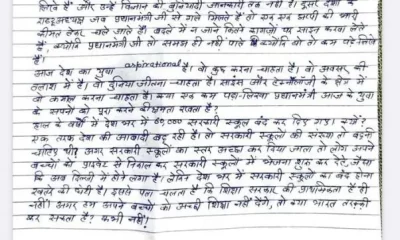 लिते हैं और उन्हें विज्ञान की बुनियादी जानकारी तक नहीं है। दूसरे देशों के
राष्ट्राध्यक्ष जब प्रधानमंत्री से गले मिलते हैं तो एक एक झप्पी की भारी
कीमत लेकर चले जाते हैं। बदले में न जाने कितने कागज़ों पर साइन करवा लेते
हैं, क्योंकि प्रधानमंत्री जी तो समझ ही नहीं पाते क्योंकि वो तो कम पढ़े लिखे
हैं।
आज देश का युवा aspirational है। वो कुछ करना चाहता है। वो अवसर की
तलाश में है। वो दुनिया जीतना चाहता है। साइंस और टेक्नोलॉजी के क्षेत्र में
वो कमाल करना चाहता है। क्या एक कम पढ़ा-लिखा प्रधानमंत्री आज के युवा
के सपनों को पूरा करने की क्षमता रखता है?
हाल के वर्षों में देश भर में 60,000 सरकारी स्कूल बंद कर दिए गए। क्यों?
एक तरफ देश की आबादी बढ़ रही है। तो सरकारी स्कूलों की संख्या तो बढ़नी
चाहिए थी? अगर सरकारी स्कूलों का स्तर अच्छा कर दिया जाता तो लोग अपने
बच्चों को प्राइवेट से निकाल कर सरकारी स्कूलों में भेजना शुरू कर देते, जैसा
कि अब दिल्ली में होने लगा है। लेकिन देश भर में सरकारी स्कूलों का बंद होना
खतरे की घंटी है। इससे पता चलता है कि शिक्षा सरकार की प्राथमिकता है ही
नहीं। अगर हम अपने बच्चों को अच्छी शिक्षा नहीं देंगे, तो क्या भारत तरक्की
कर सकता है? कभी नहीं!